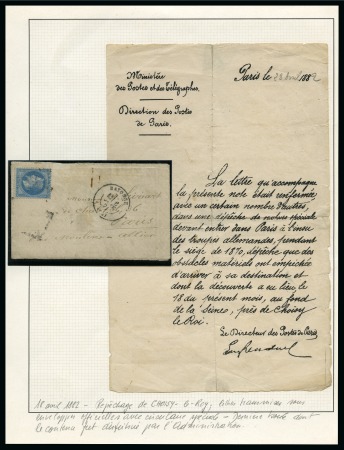 Ministère
des Postes et des Télégraphes.
Direction des Postes
de Paris.
Paris le 1882
La lettre qu'accompagne
la présente note était renfermée
avec un certain nombre d'autres,
dans une dépêche de nature spéciale
devant entrer dans Paris à l'insu
des troupes allemandes, pendant
le siège de 1870, dépêche que des
obstacles matériels ont empêchée
d'arriver à sa destination et
dont la découverte a eu lieu le
18 du présent mois, au fond
de la Seine, près de Choisy
le Roi.
Le Directeur des Postes de Paris
18 avril 1882 - Repêchage de CHOISY-le-Roy, sous
enveloppes officielles avec circulaire spéciale - dont
le contenu fut par l'Administration.